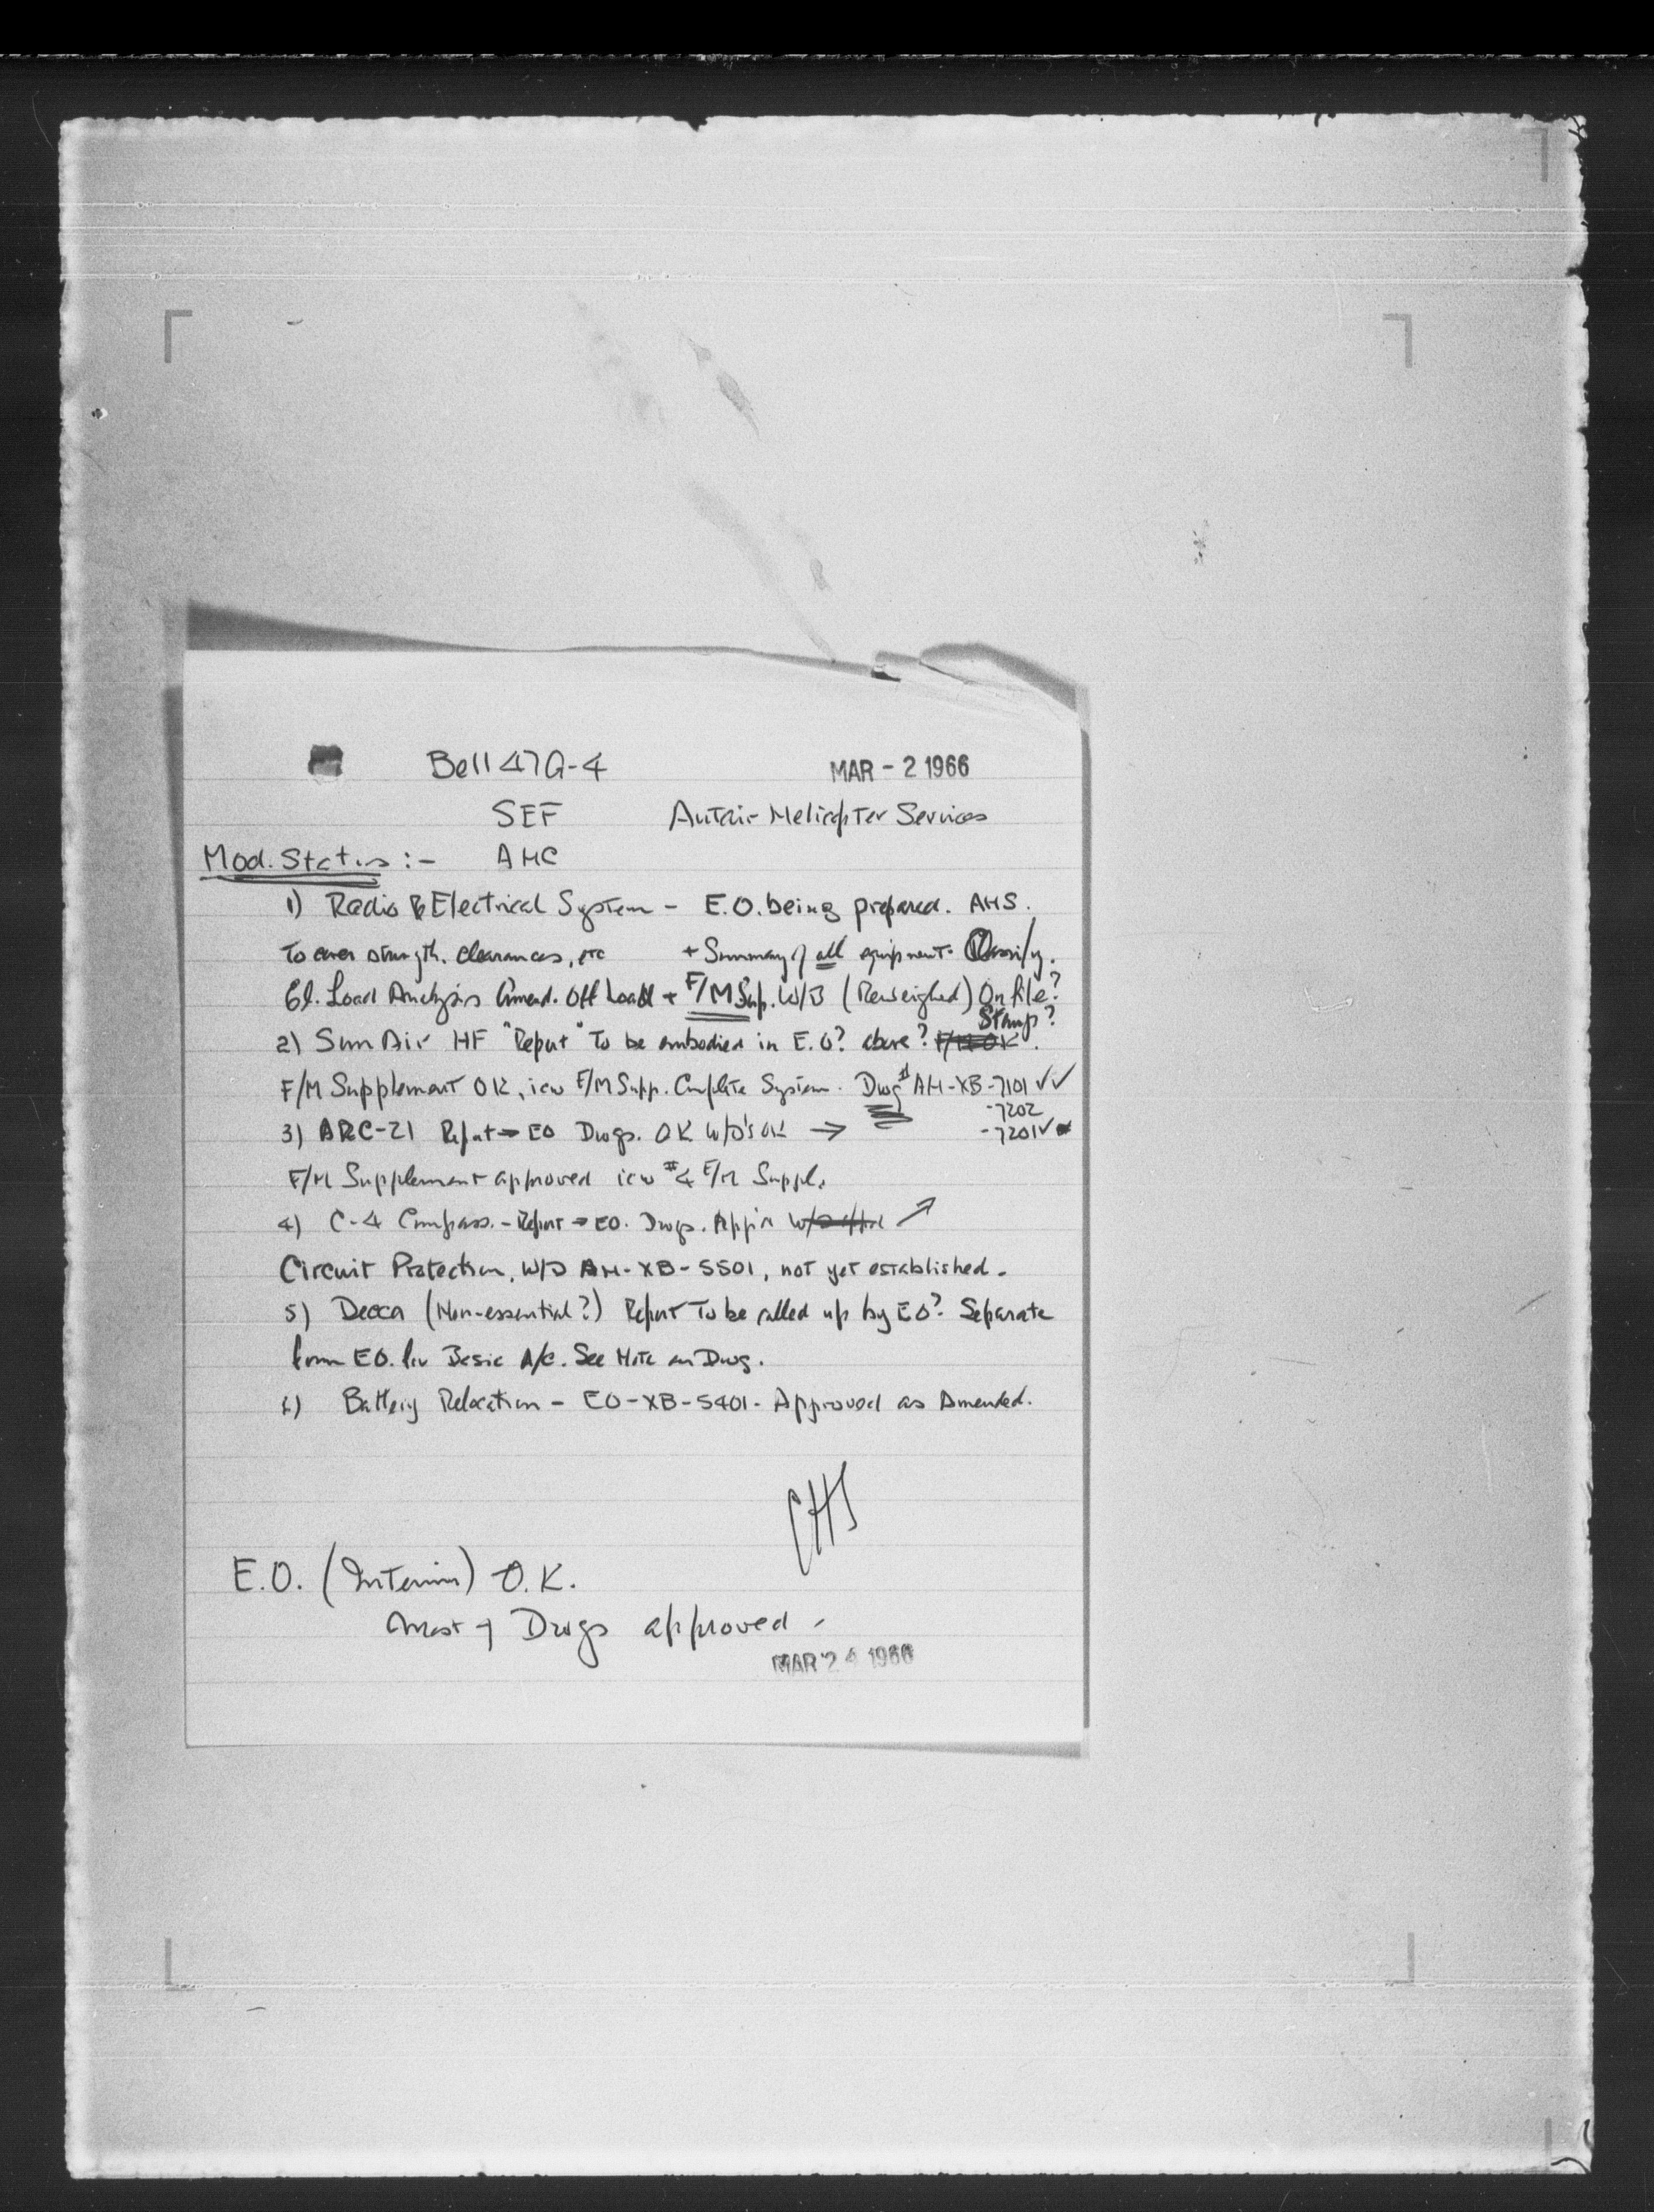 Bell 47G-4 MAR - 2 1966
SEF Autair Helicopter Services
Mod. Status :- AHC
1) Radio & Electrical System - E.O. being prepared. AHS.
To cover strength. clearances, etc + Summary of all equipment. Classify.
El. Load Analysis Amend. Off Load + F/M Sup. W/B (Reweighed) On file?
Stamp?
2) Sun Air HF "Report" To be embodied in E.O? above? F/M OK.
F/M Supplement OK, icw F/M Supp. Complete System. Dwg # AH-XB-7101 ✓✓
-7202
3) ARC-21 Report → EO Dwgs. OK W/D's OK → -7201 ✓
F/M Supplement approved icw #4 F/M Suppl.
4) C-4 Compass. - Report → EO. Dwgs. App'd W/D app'd ↗
Circuit Protection, W/D AH-XB-5501, not yet established.
5) Decca (Non-essential?) Report To be called up by EO? Separate
from EO. for Basic A/C. See Note on Dwg.
6) Battery Relocation - EO-XB-5401 - Approved as Amended.
E.O. (Interim) O.K.
Most of Dwgs approved -
MAR 24 1966